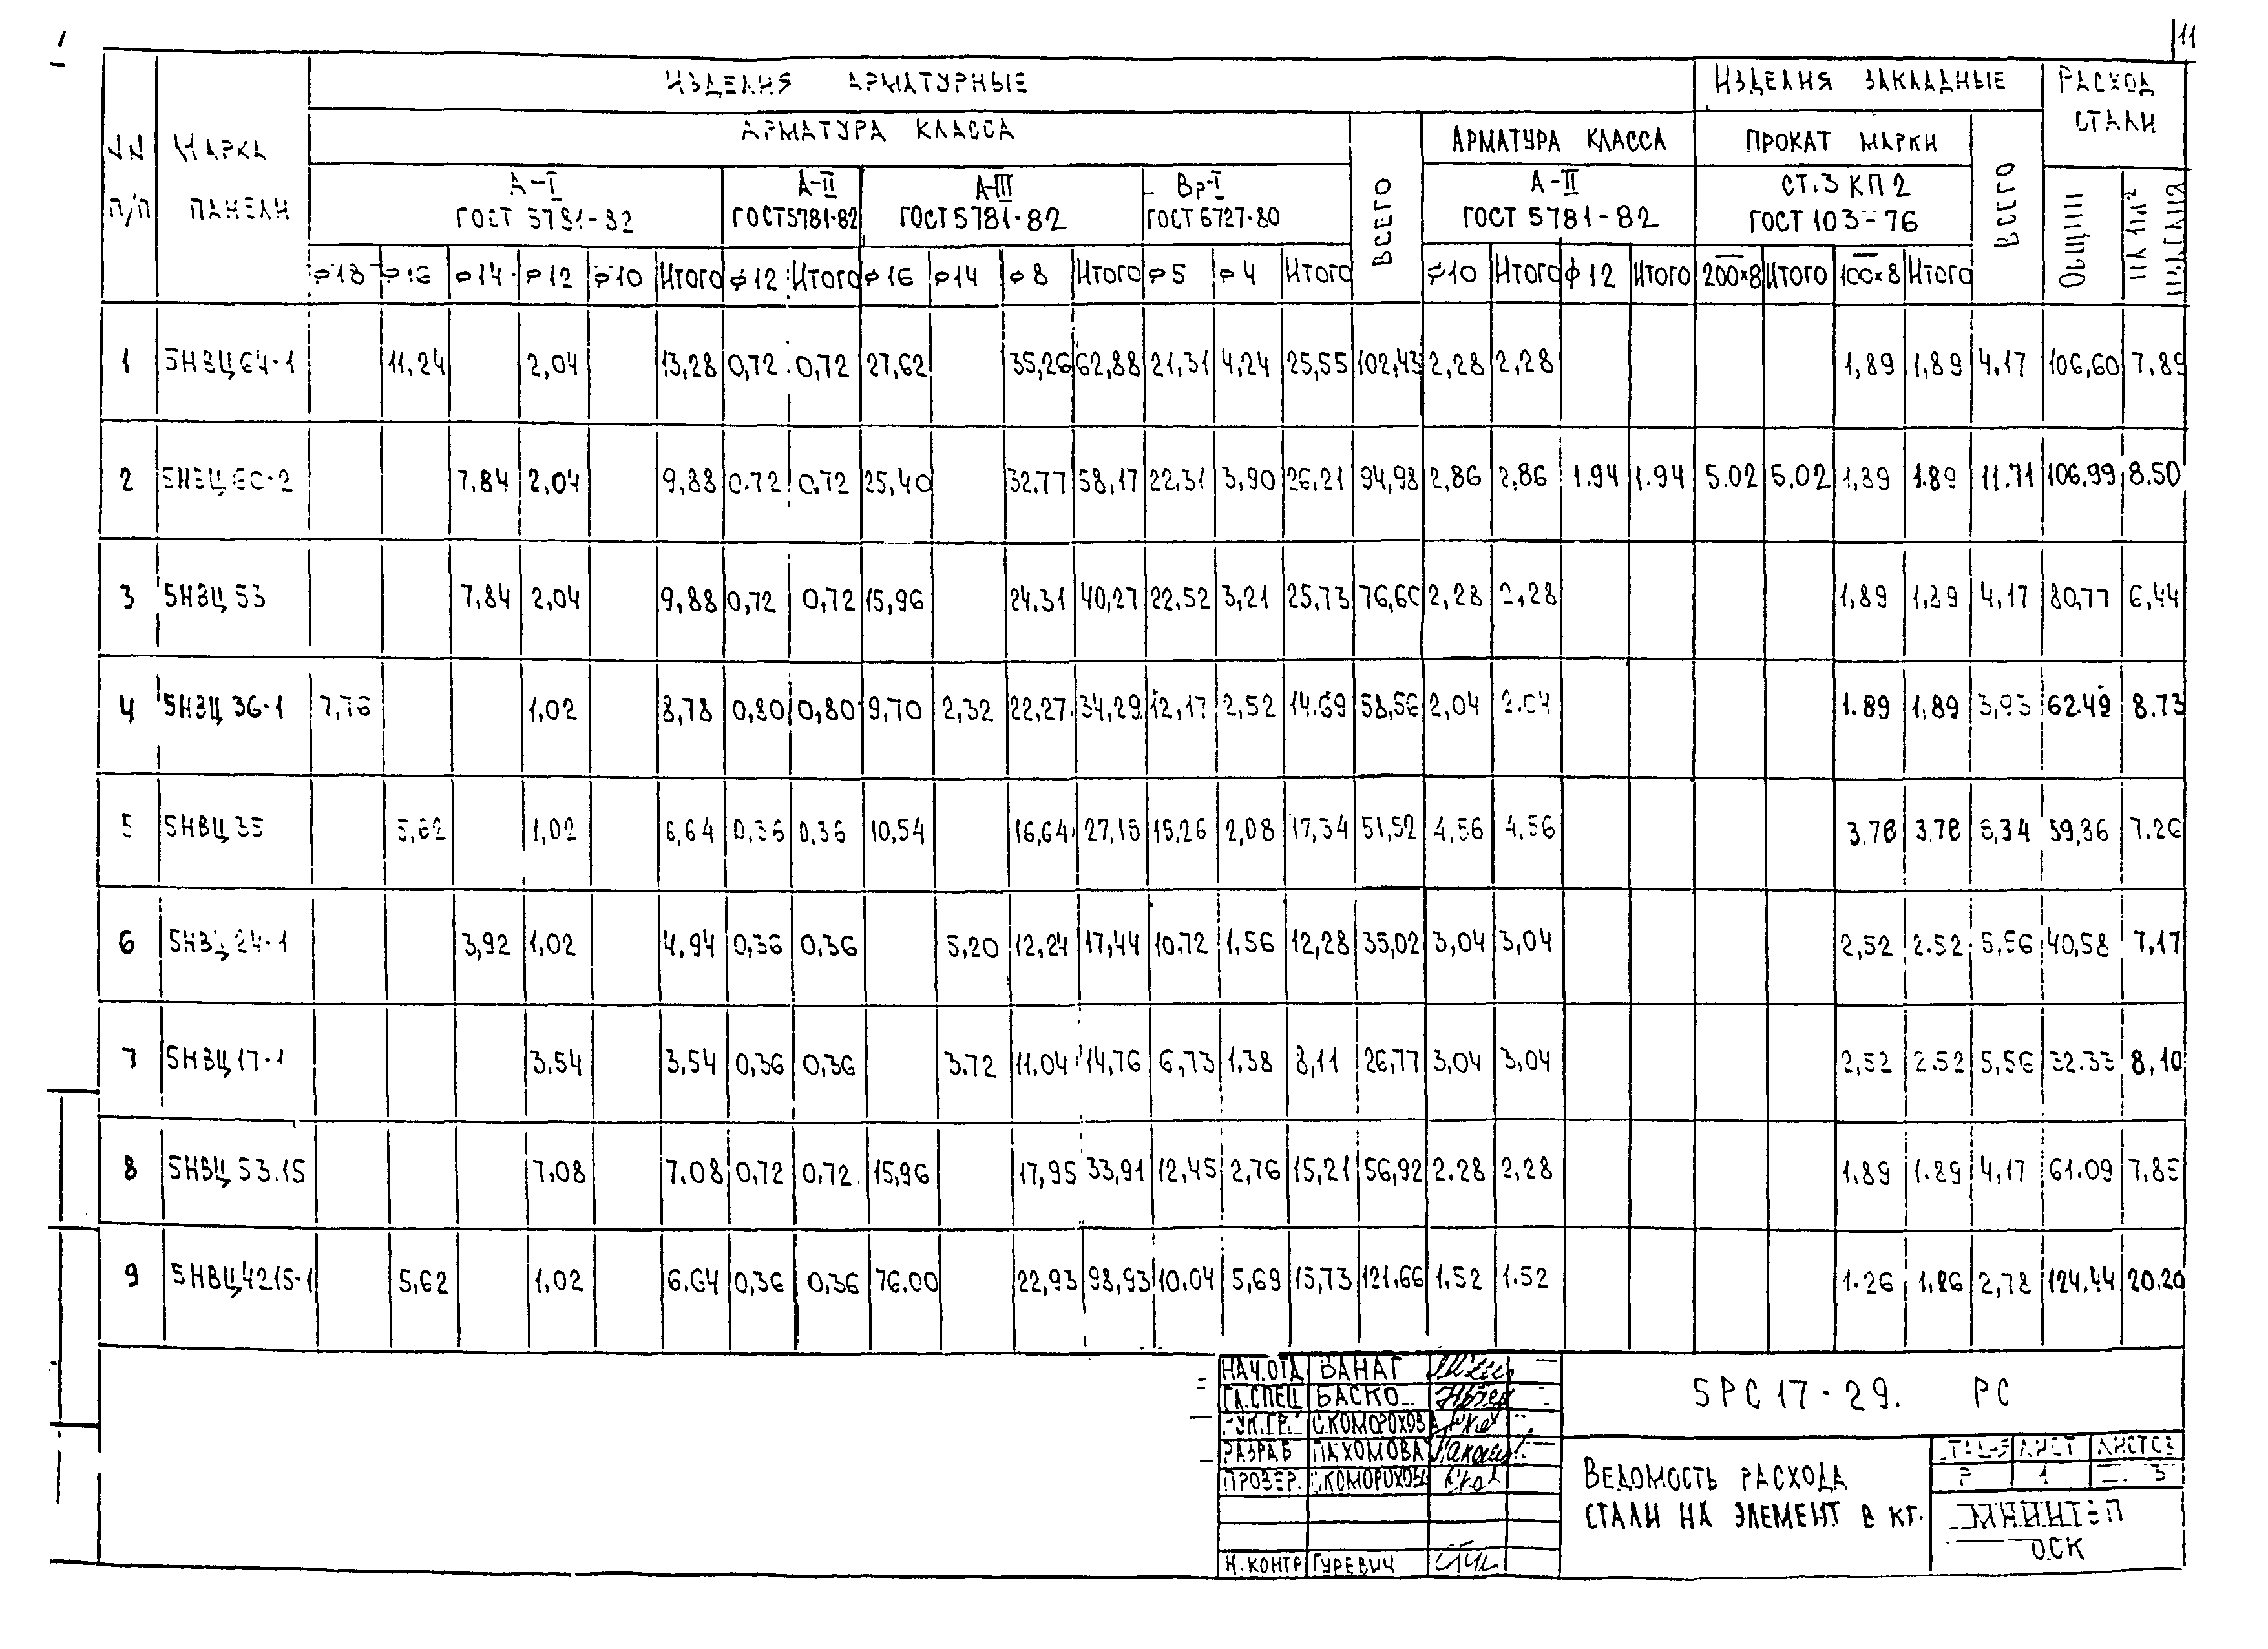 11
ИЗДЕЛИЯ АРМАТУРНЫЕ
ИЗДЕЛИЯ ЗАКЛАДНЫЕ
РАСХОД СТАЛИ
NN П/П
МАРКА ПАНЕЛИ
АРМАТУРА КЛАССА
ВСЕГО
АРМАТУРА КЛАССА
ПРОКАТ МАРКИ
ВСЕГО
ОБЩИЙ
НА 1М²
А-I ГОСТ 5781-82
А-II ГОСТ 5781-82
А-III ГОСТ 5781-82
Вр-I ГОСТ 6727-80
А-II ГОСТ 5781-82
СТ.3 КП2 ГОСТ 103-76
φ18 φ16 φ14 φ12 φ10 Итого φ12 Итого φ16 φ14 φ8 Итого φ5 φ4 Итого φ10 Итого φ12 Итого 200×8 Итого 100×8 Итого
1 5НВЦ64-1 11,24 2,04 13,28 0,72 0,72 27,62 35,26 62,88 21,31 4,24 25,55 102,43 2,28 2,28 1,89 1,89 4,17 106,60 7,89
2 5НВЦ60-2 7,84 2,04 9,88 0.72 0,72 25,40 32.77 58,17 22,31 3,90 26,21 94,98 2,86 2,86 1.94 1.94 5.02 5,02 1,89 1.89 11.71 106.99 8.50
3 5НВЦ53 7,84 2,04 9,88 0,72 0,72 15,96 24.31 40,27 22,52 3,21 25.73 76,60 2,28 2,28 1,89 1,89 4,17 80,77 6,44
4 5НВЦ36-1 7,76 1,02 8,78 0,80 0,80 9,70 2,32 22,27 34,29 12,17 2,52 14.69 58,56 2,04 2.04 1.89 1,89 3,93 62.49 8.73
5 5НВЦ35 5,62 1,02 6,64 0,36 0,36 10,54 16,64 27,18 15,26 2,08 17,34 51,52 4,56 4,56 3.78 3.78 8,34 59,86 7.26
6 5НВЦ24-1 3,92 1,02 4,94 0,36 0,36 5,20 12,24 17,44 10,72 1,56 12,28 35,02 3,04 3,04 2,52 2.52 5,56 40,58 7,17
7 5НВЦ17-1 3.54 3,54 0,36 0,36 3.72 11,04 14,76 6,73 1,38 8,11 26,77 3,04 3,04 2,52 2.52 5,56 32.33 8,10
8 5НВЦ53.15 7,08 7.08 0,72 0,72 15,96 17,95 33,91 12,45 2,76 15,21 56,92 2.28 2,28 1.89 1.89 4,17 61.09 7,85
9 5НВЦ42.15-1 5,62 1,02 6.64 0,36 0,36 76.00 22,93 98,93 10,04 5,69 15,73 121,66 1,52 1.52 1.26 1,26 2,78 124,44 20,20
НАЧ.ОТД ВАНАГ
ГЛ.СПЕЦ БАСКО
РУК.ГР. СКОМОРОХОВА
РАЗРАБ ПАХОМОВА
ПРОВЕР. СКОМОРОХОВА
Н.КОНТР ГУРЕВИЧ
5РС17-29. РС
ВЕДОМОСТЬ РАСХОДА
СТАЛИ НА ЭЛЕМЕНТ В КГ.
СТАДИЯ ЛИСТ ЛИСТОВ
Р 1 3
МНИИТЭП
ОСК